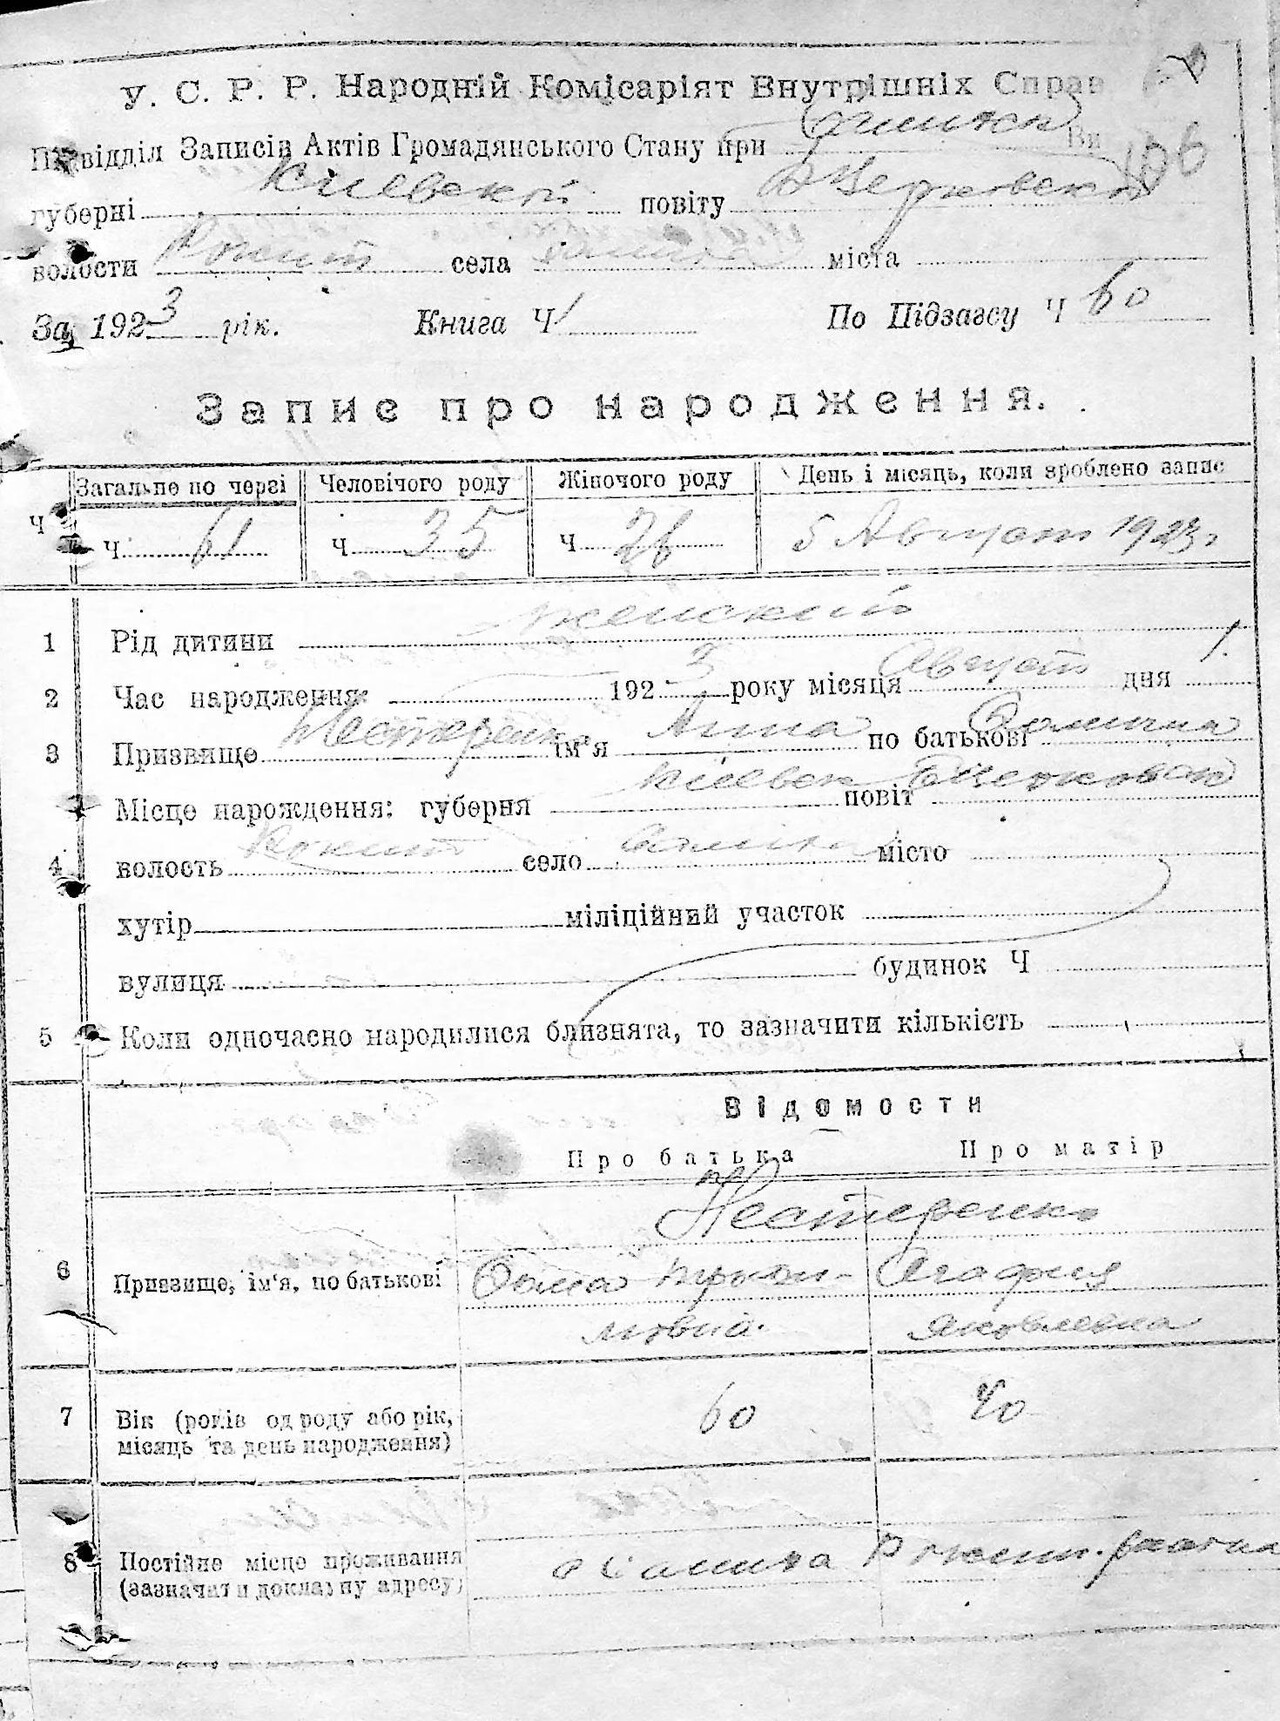 У. С. Р. Р. Народній Комісаріят Внутрішніх Справ
Підвідділ Записів Актів Громадянського Стану при Ви 106
губерні Киевской повіту БЦерковской
волости Рокит села міста
За 1923 рік. Книга Ч 1 По Підзагсу Ч 60
Запис про народження.
Загальне по черзі Человічого роду Жіночого роду День і місяць, коли зроблено запис
Ч Ч. 61 Ч 35 Ч 26 5 Август 1923 г
1 Рід дитини женский
2 Час народження: 1923 року місяця Август дня 1
3 Призвище Нестеренко ім'я Анна по батькові Фомична
Місце нарождення: губерня Киевск повіт БЦерковск
4 волость Рокит село місто
хутір міліційний участок
вулиця будинок Ч
5 Коли одночасно народилися близнята, то зазначити кількість
Відомости
Про батька Про матір
Нестеренко
6 Призвище, ім'я, по батькові Фома Агафия
Яковлевна
7 Вік (років од роду або рік, 60 40
місяць та день народження)
8 Постійне місце проживання
(зазначати докладну адресу)